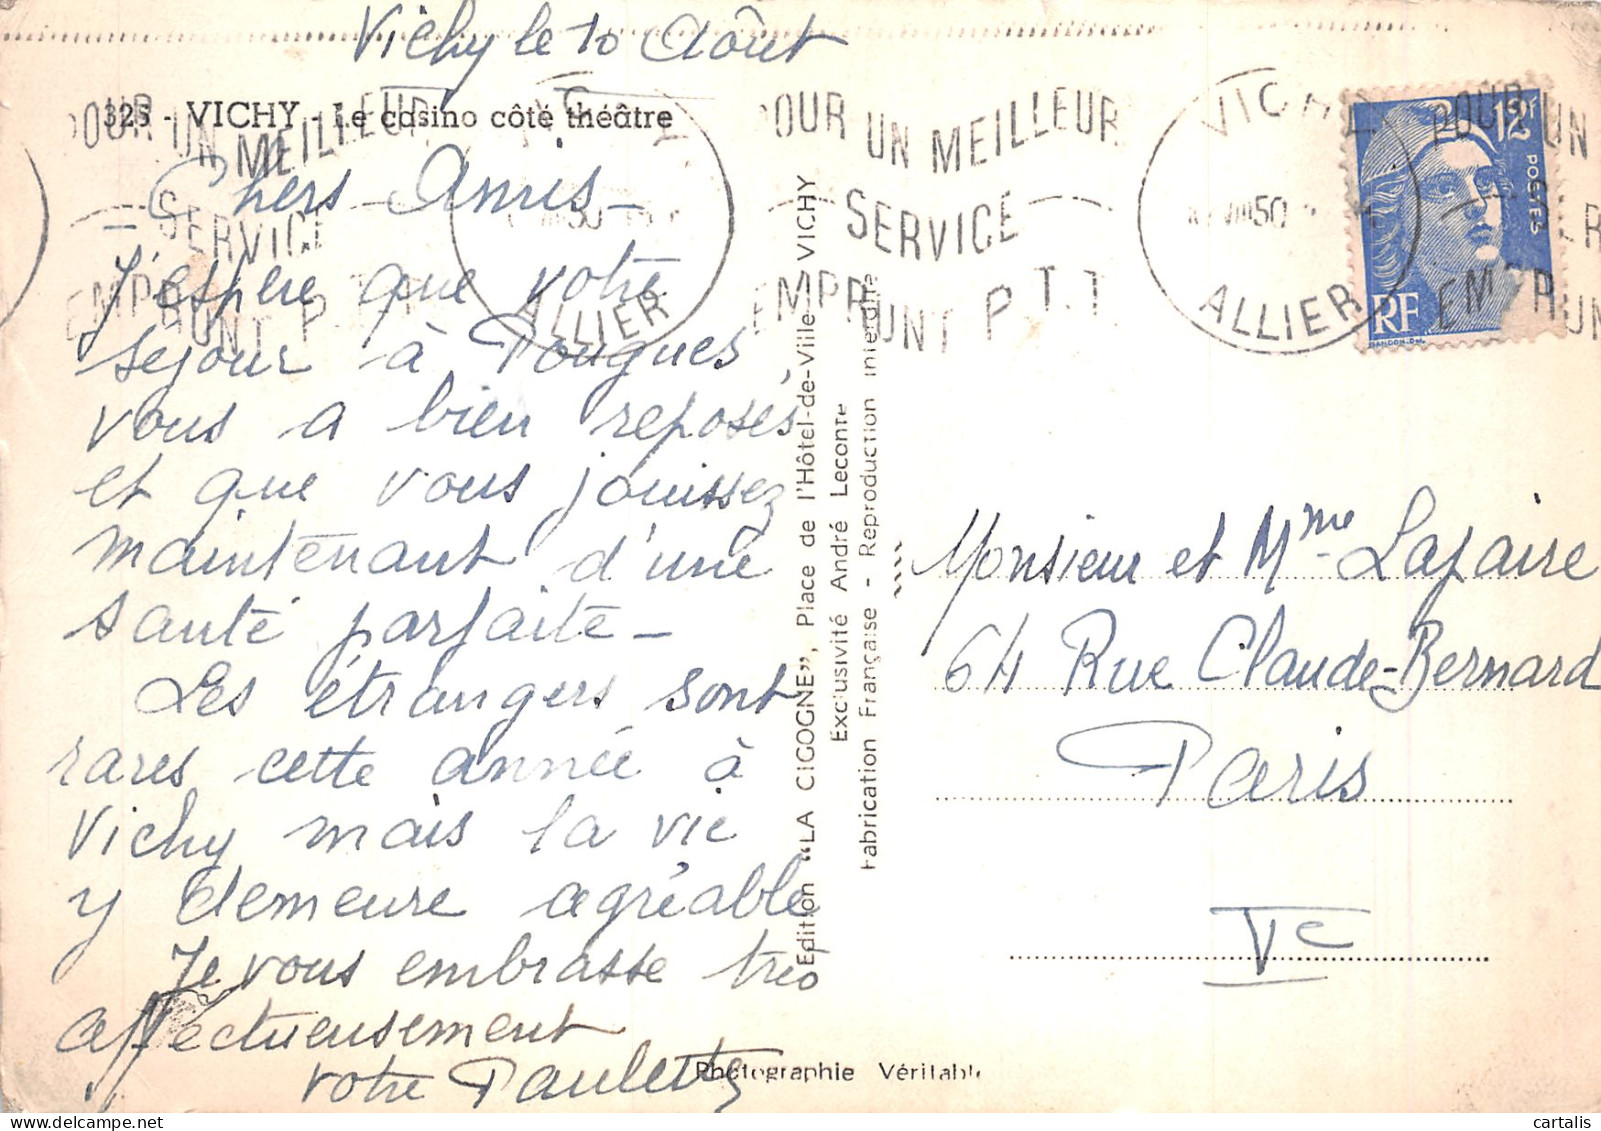 Vichy le 10 Août
325 - VICHY - Le casino côté théâtre
POUR UN MEILLEUR
SERVICE
EMPRUNT P.T.T
ALLIER
50
POUR UN MEILLEUR
SERVICE
EMPRUNT P.T.T
VICHY
VIII 50
ALLIER
12F
POSTES
RF
GANDON.
POUR UN
EMPRUN
Chers Amis -
J'espère que votre
séjour à Pougues
vous a bien reposés
et que vous jouissez
maintenant d'une
santé parfaite -
Les étrangers sont
rares cette année à
Vichy mais la vie
y demeure agréable
Je vous embrasse très
affectueusement
votre Paulette
Edition "LA CIGOGNE", Place de l'Hôtel-de-Ville VICHY
Exclusivité André Leconte
Fabrication Française - Reproduction interdite
Monsieur et Mme Lafaire
64 Rue Claude-Bernard
Paris
Ve
Photographie Véritable
cartalis | delcampe.net